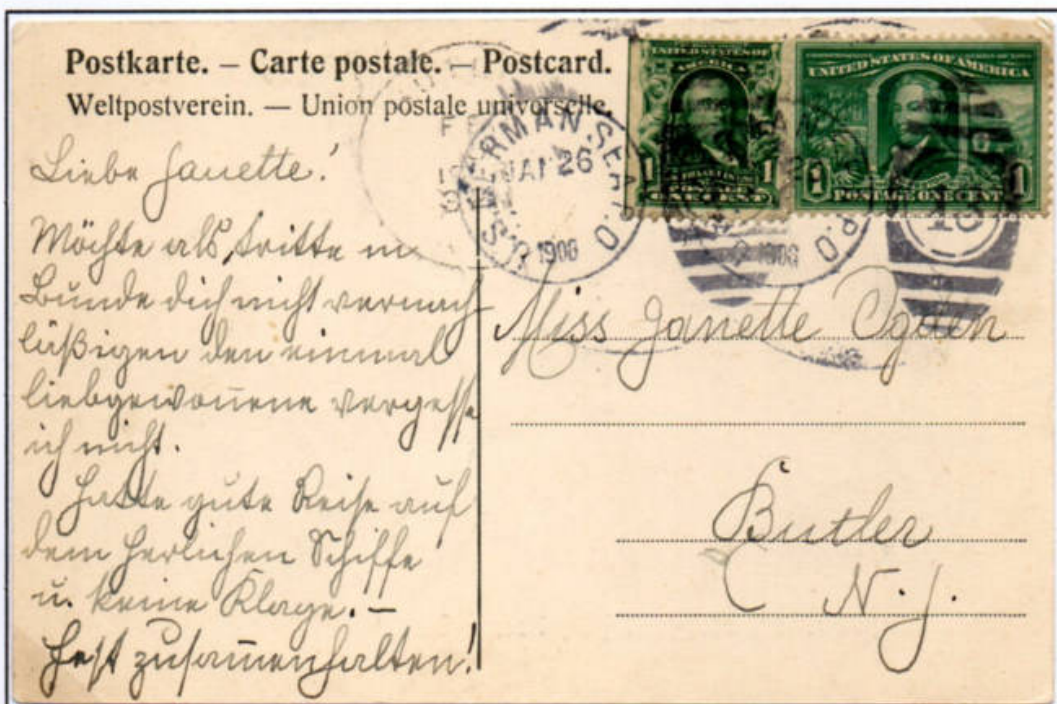 Postkarte. – Carte postale. – Postcard.
Weltpostverein. — Union postale universelle.
UNITED STATES OF
AMERICA
1 1
UNITED STATES OF AMERICA
1 POSTAGE ONE CENT 1
U.S. GERMAN SEA P.O.
JAN 26
1906
P.O
1906
Liebe Janette!
Möchte als dritte im
Bunde dich nicht vernach
läßigen den einmal
liebgewoñene vergesse
ich nicht.
Hatte gute Reise auf
dem herlichen Schiffe
u. keine Klage. –
Fest zusam̄enhalten!
Miss Janette Ogden
Butler
N. J.